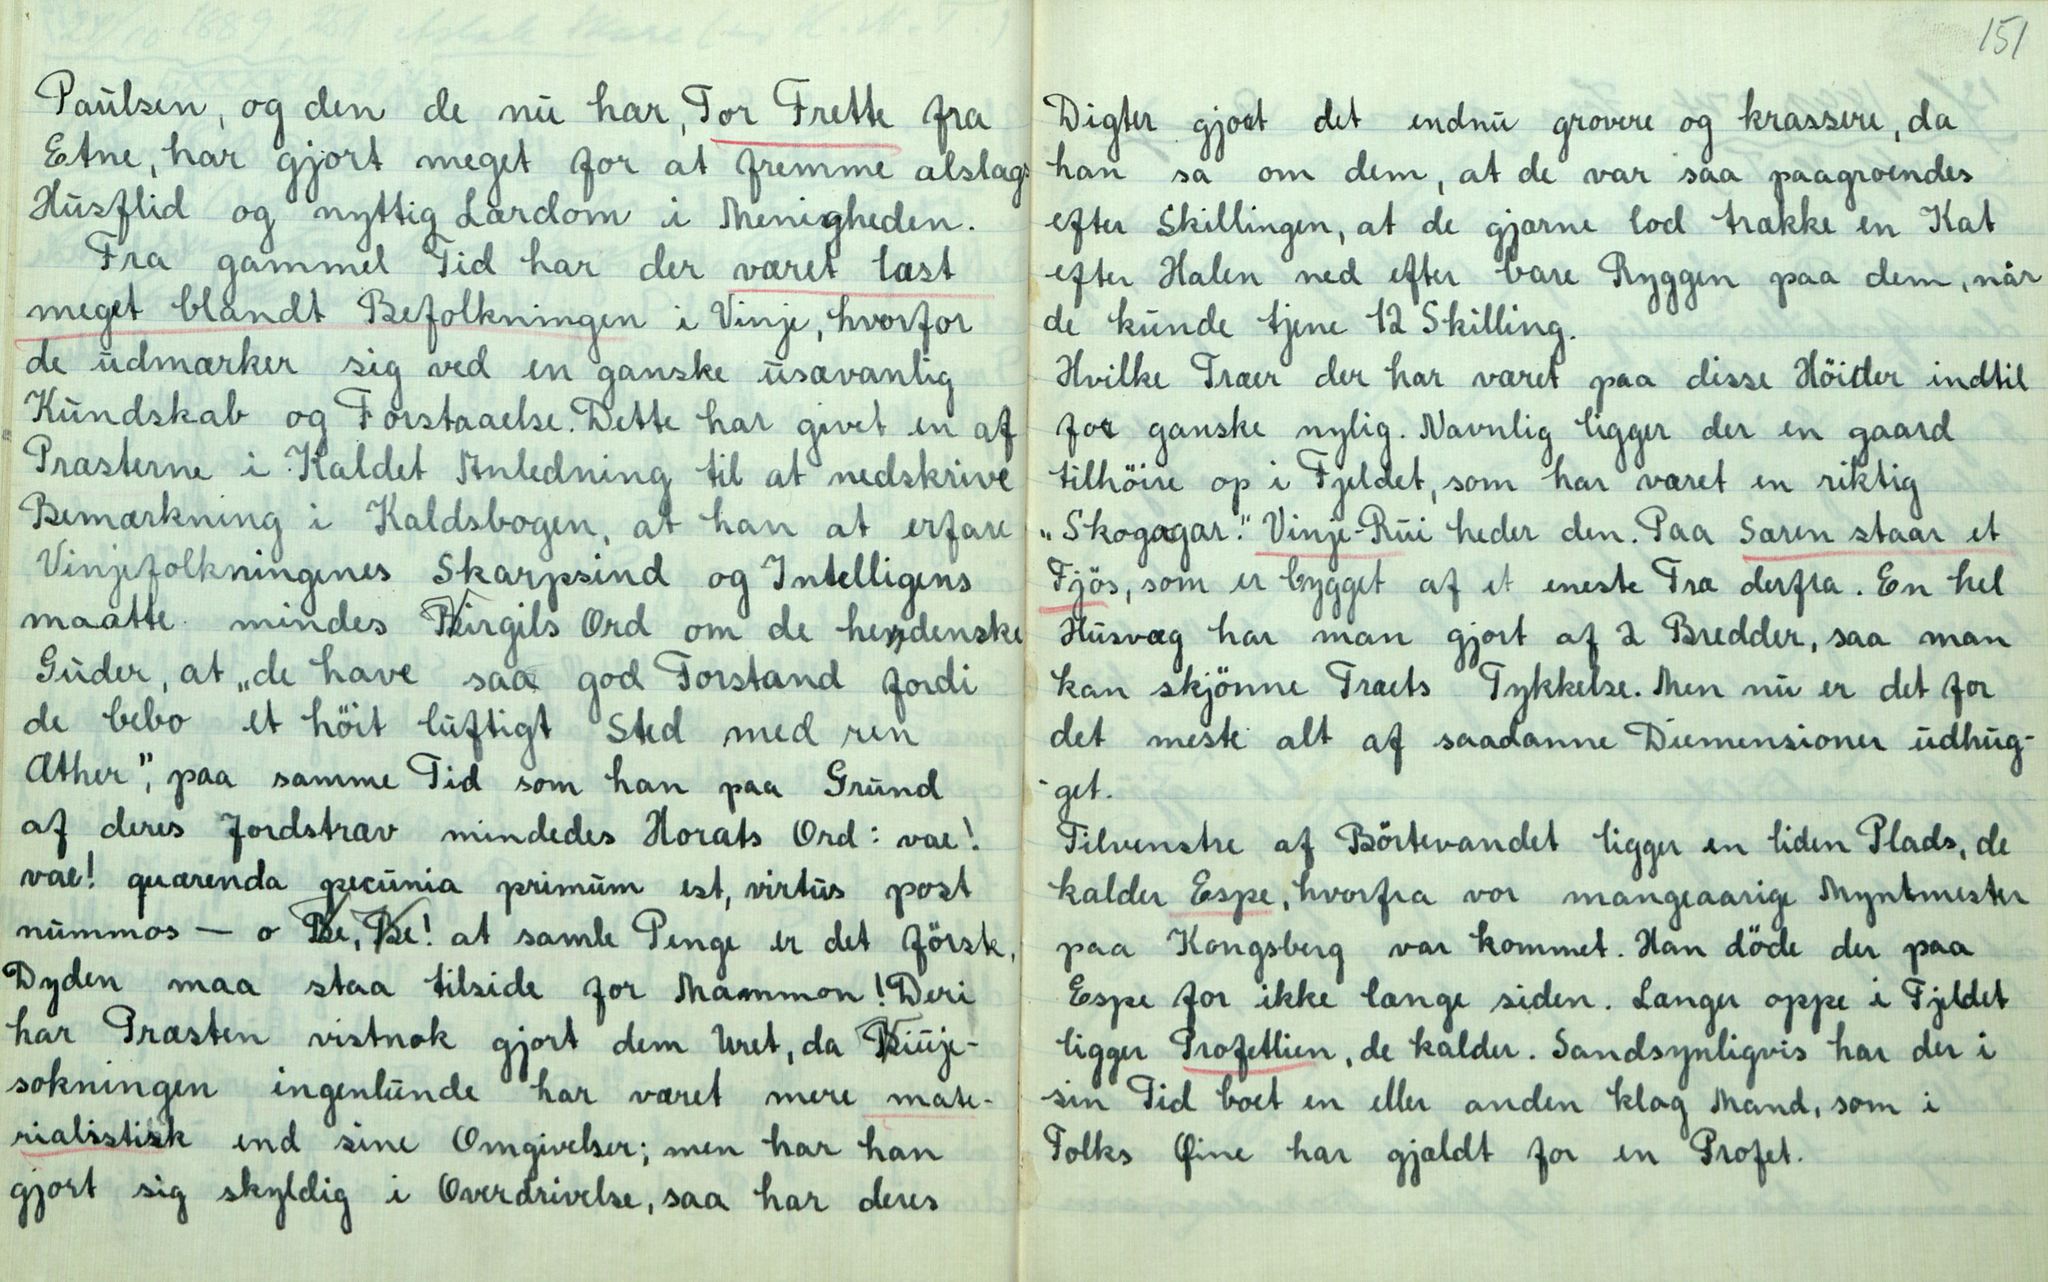 151
Paulsen, og den de nu har, Tor Frette fra
Etne, har gjort meget for at fremme alslags
Husflid og nyttig Lærdom i Menigheden.
Fra gammel Tid har der været læst
meget blandt Befolkningen i Vinje, hvorfor
de udmærker sig ved en ganske usævanlig
Kundskab og Forstaaelse. Dette har givet en af
Præsterne i Kaldet Anledning til at nedskrive
Bemærkning i Kaldsbogen, at han at erfare
Vinjefolkningenes Skarpsind og Intelligens
maatte mindes Virgils Ord om de hendenske
Guder, at „de have saa god Forstand fordi
de bebo et höit luftigt Sted med ren
Æther", paa samme Tid som han paa Grund
af deres Jordstræv mindedes Horats Ord: vae!
vae! quærenda pecunia primum est, virtus post
nummos — o Ve, Ve! at samle Penge er det försk,
Dyden maa staa tilside for Mammon! Deri
har Præsten vistnok gjort dem Uret, da Vinje-
sokningen ingenlunde har været mere mate-
rialistisk end sine Omgivelser; men har han
gjort sig skyldig i Overdrivelse, saa har deres
Digter gjort det endnu grovere og krassere, da
han sa om dem, at de var saa paagroendes
efter Skillingen, at de gjærne lod trække en Kat
efter Halen ned efter bare Ryggen paa dem, når
de kunde tjene 12 Skilling.
Hvilke Træer der har været paa disse Höider indtil
for ganske nylig. Navnlig ligger der en gaard
tilhöire op i Fjeldet, som har været en riktig
„Skogagar." Vinje-Rui heder den. Paa Særen staar et
Fjös, som er bygget af et eneste Træ derfra. En hel
Husvæg har man gjort af 2 Bredder, saa man
kan skjönne Træets Tykkelse. Men nu er det for
det meste alt af saadanne Diemensioner udhug-
-get.
Tilvenstre af Börtevandet ligger en liden Plads, de
kalder Espe, hvorfra vor mangeaarige Myntmester
paa Kongsberg var kommet. Han döde der paa
Espe for ikke længe siden. Længer oppe i Fjeldet
ligger Profetlien, de kalder. Sandsynligvis har der i
sin Tid boet en eller anden klog Mand, som i
Folks Øine har gjældt for en Profet.